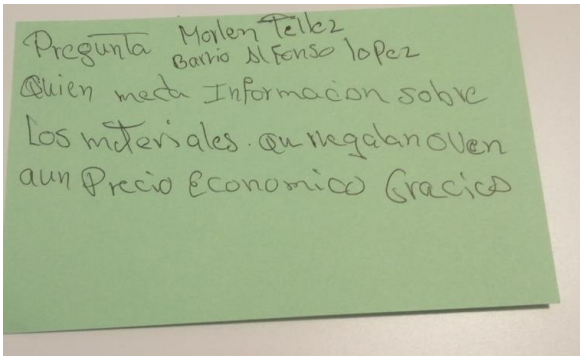 Pregunta Morlen Tellez
Barrio Alfonso lopez
Quien meda Informacion sobre
Los materiales. qu regalan o ven
aun Precio Economico Gracias